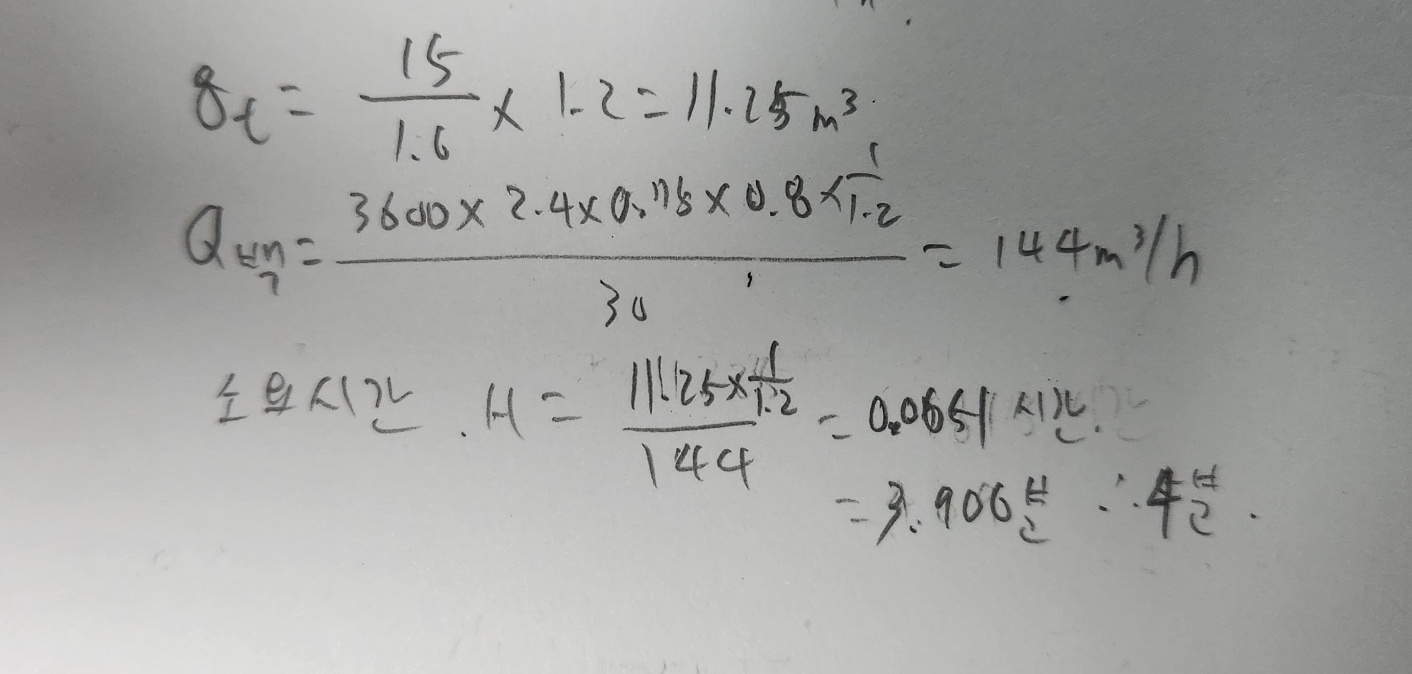 qt = 15/1.6 × 1.2 = 11.25 m³.
Q백 = (3600 × 2.4 × 0.75 × 0.8 × 1/1.2) / 30 = 144 m³/h
소요시간. H = (11.25 × 1/1.2) / 144 = 0.0651 시간.
= 3.906분 ∴ 4분.